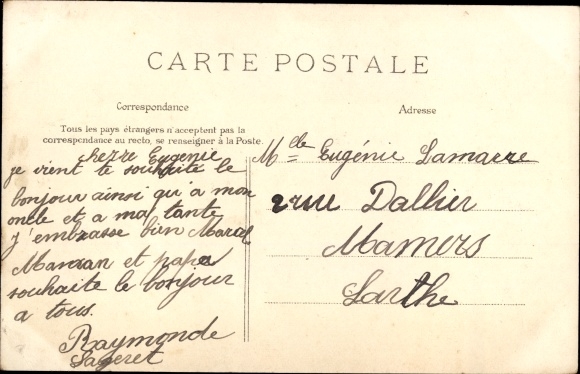 CARTE POSTALE
Correspondance
Tous les pays étrangers n'acceptent pas la
correspondance au recto, se renseigner à la Poste.
cherre Eugénie
je vient te souhaite le
bonjour ainsi qu'a mon
oncle et a ma tante
j'embrasse bien Marcel
Maman et papa
souhaite le bonjour
a tous.
Raymonde
Adresse
Mlle Eugénie Lamarre
2 rue Dallier
Mamers
Sarthe